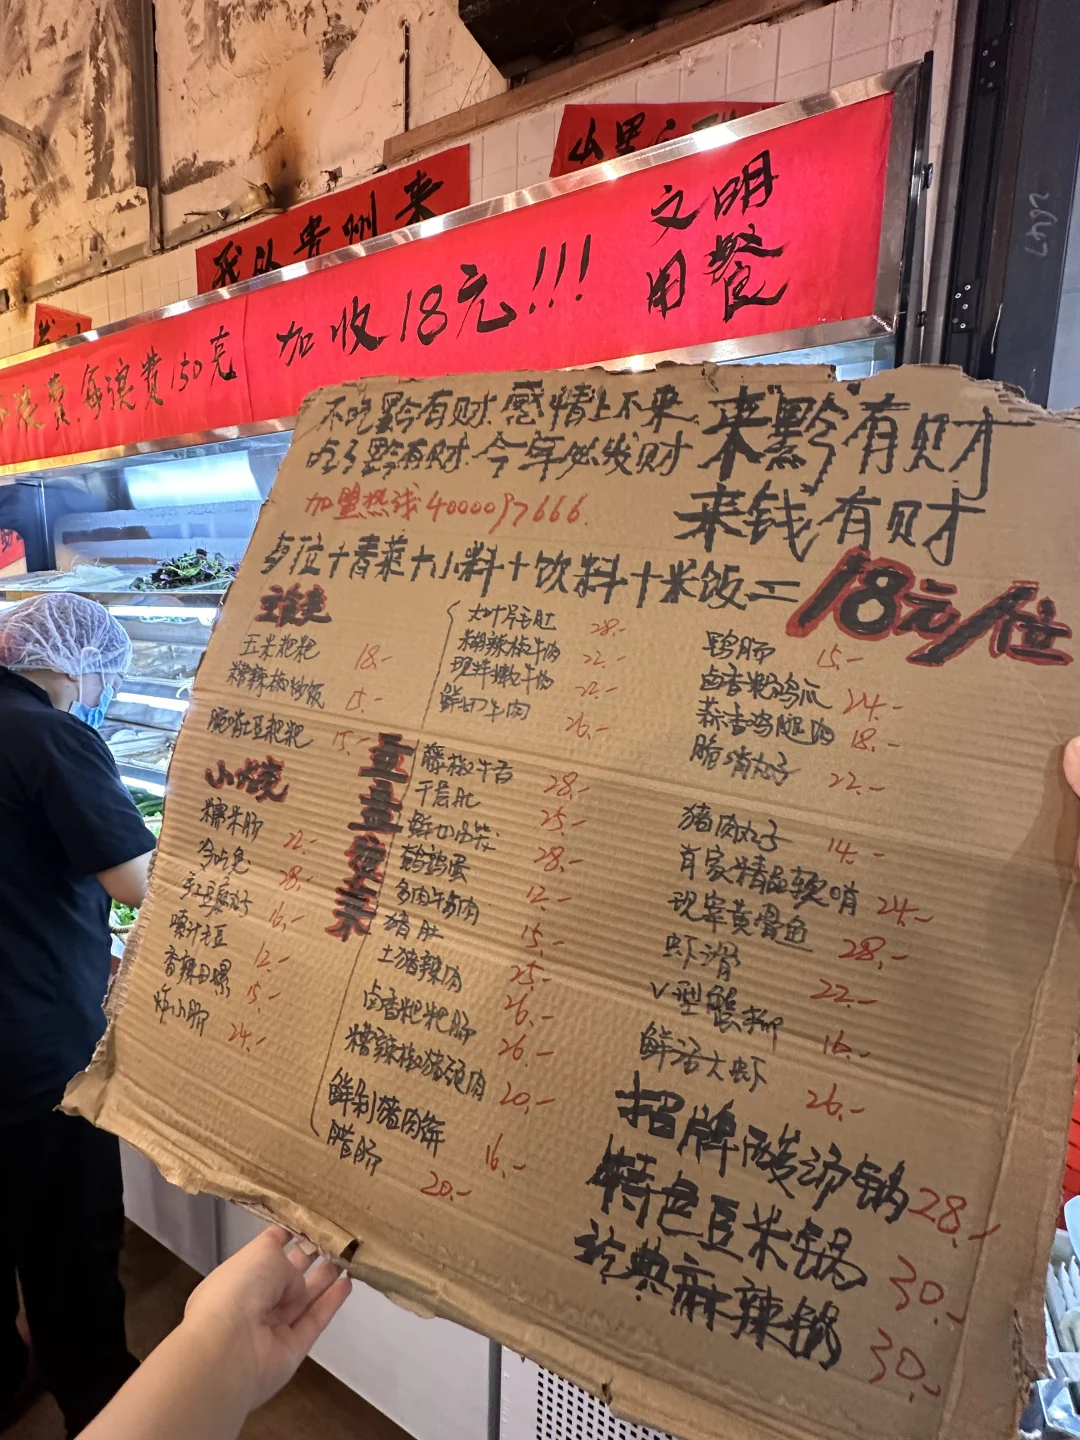 我从贵州来
加收18元!!!
文明
用餐
浪费.每浪费150克
不吃黔有财.感情上不来.
吃了黔有财.今年必发财
来"黔"有财
来钱有财
加盟热线4000097666.
+青菜+小料+饮料+米饭=
18元/位
主食
玉米粑粑 18.-
糟辣椒炒饭 15.-
脆哨土豆粑粑 15.-
小烧
糯米肠 22.-
冷吃兔 28.-
手工豆腐丸子 16.-
12.-
香辣田螺 15.-
24.-
大叶毛肚 28.-
糊辣椒牛肉 22.-
现拌嫩牛肉 22.-
鲜切牛肉 26.-
藤椒牛舌 28.-
千层肚 25.-
28.-
鹌鹑蛋 12.-
多肉牛筋肉 15.-
猪肚 25.-
土猪辣肉 26.-
卤香粑粑肠 26.-
糟辣椒猪颈肉 20.-
鲜剁猪肉饼 16.-
腊肠 20.-
鸭肠 15.-
卤香粉鸡爪 24.-
蒜香鸡腿肉 18.-
脆哨丸子 22.-
猪肉丸子 14.-
肖家精品软哨 24.-
现宰黄骨鱼 28.-
虾滑 22.-
V型蟹柳 16.-
鲜活大虾 26.-
招牌酸汤锅 28.-
特色豆米锅 30.-
麻辣锅 30.-